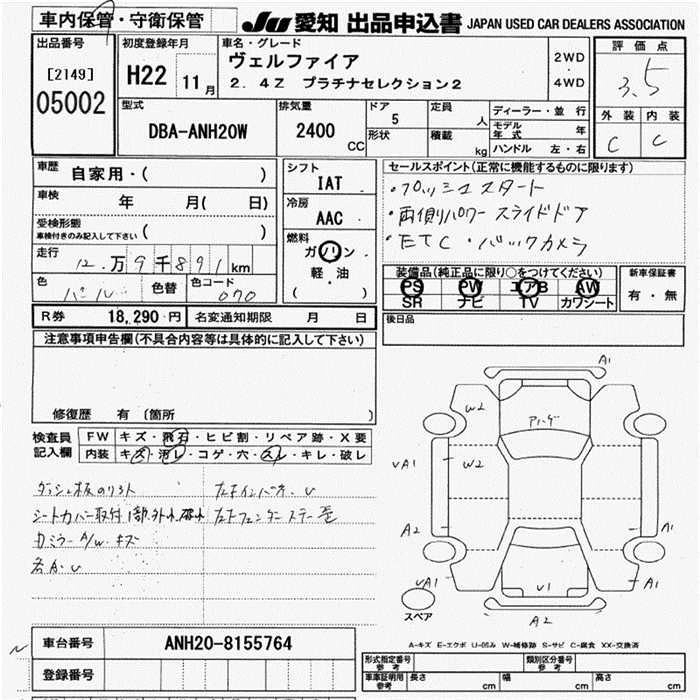 車内保管・守衛保管
JU 愛知 出品申込書 JAPAN USED CAR DEALERS ASSOCIATION
出品番号
[2149]
05002
初度登録年月
H22 11月
車名・グレード
ヴェルファイア
2.4Z プラチナセレクション2
2WD
・
4WD
評価点
3.5
外装 内装
C C
型式
DBA-ANH20W
排気量
2400 CC
ドア
5
形状
定員
人
積載
kg
ディーラー・並行
モデル年式 年
ハンドル 左・右
車歴 自家用・( )
車検 年 月( 日)
受検形態
車検付きのみ記入して下さい ( )
走行 12万9千891km
色 パール 色替 色コード 070
シフト
IAT
冷房
AAC
燃料
ガソリン
・
軽・油
( )
セールスポイント(正常に機能するものに限ります)
・プッシュスタート
・両側パワースライドドア
・ETC・バックカメラ
装備品(純正品に限り○をつけてください)
PS PW エアB AW
SR ナビ TV カワシート
新車保証書
有・無
R券 18,290円 名変通知期限 月 日
後日品
注意事項申告欄(不具合内容等は具体的に記入して下さい)
修復歴 有 (箇所 )
検査員記入欄
FW キズ・飛石・ヒビ割・リペア跡・X要
内装 キズ・汚レ・コゲ・穴・スレ・キレ・破レ
シートカバー取付
カミラー A/W キズ
A1
W2
W2
A2
A1
A1
V1
A2
スペア
A-キズ E-エクボ U-凹み W-補修跡 S-サビ C-腐食 XX-交換済
車台番号 ANH20-8155764
登録番号
形式指定番号 参考
類別区分番号 参考
車庫証明用 参考 長さ cm 幅 cm 高さ cm